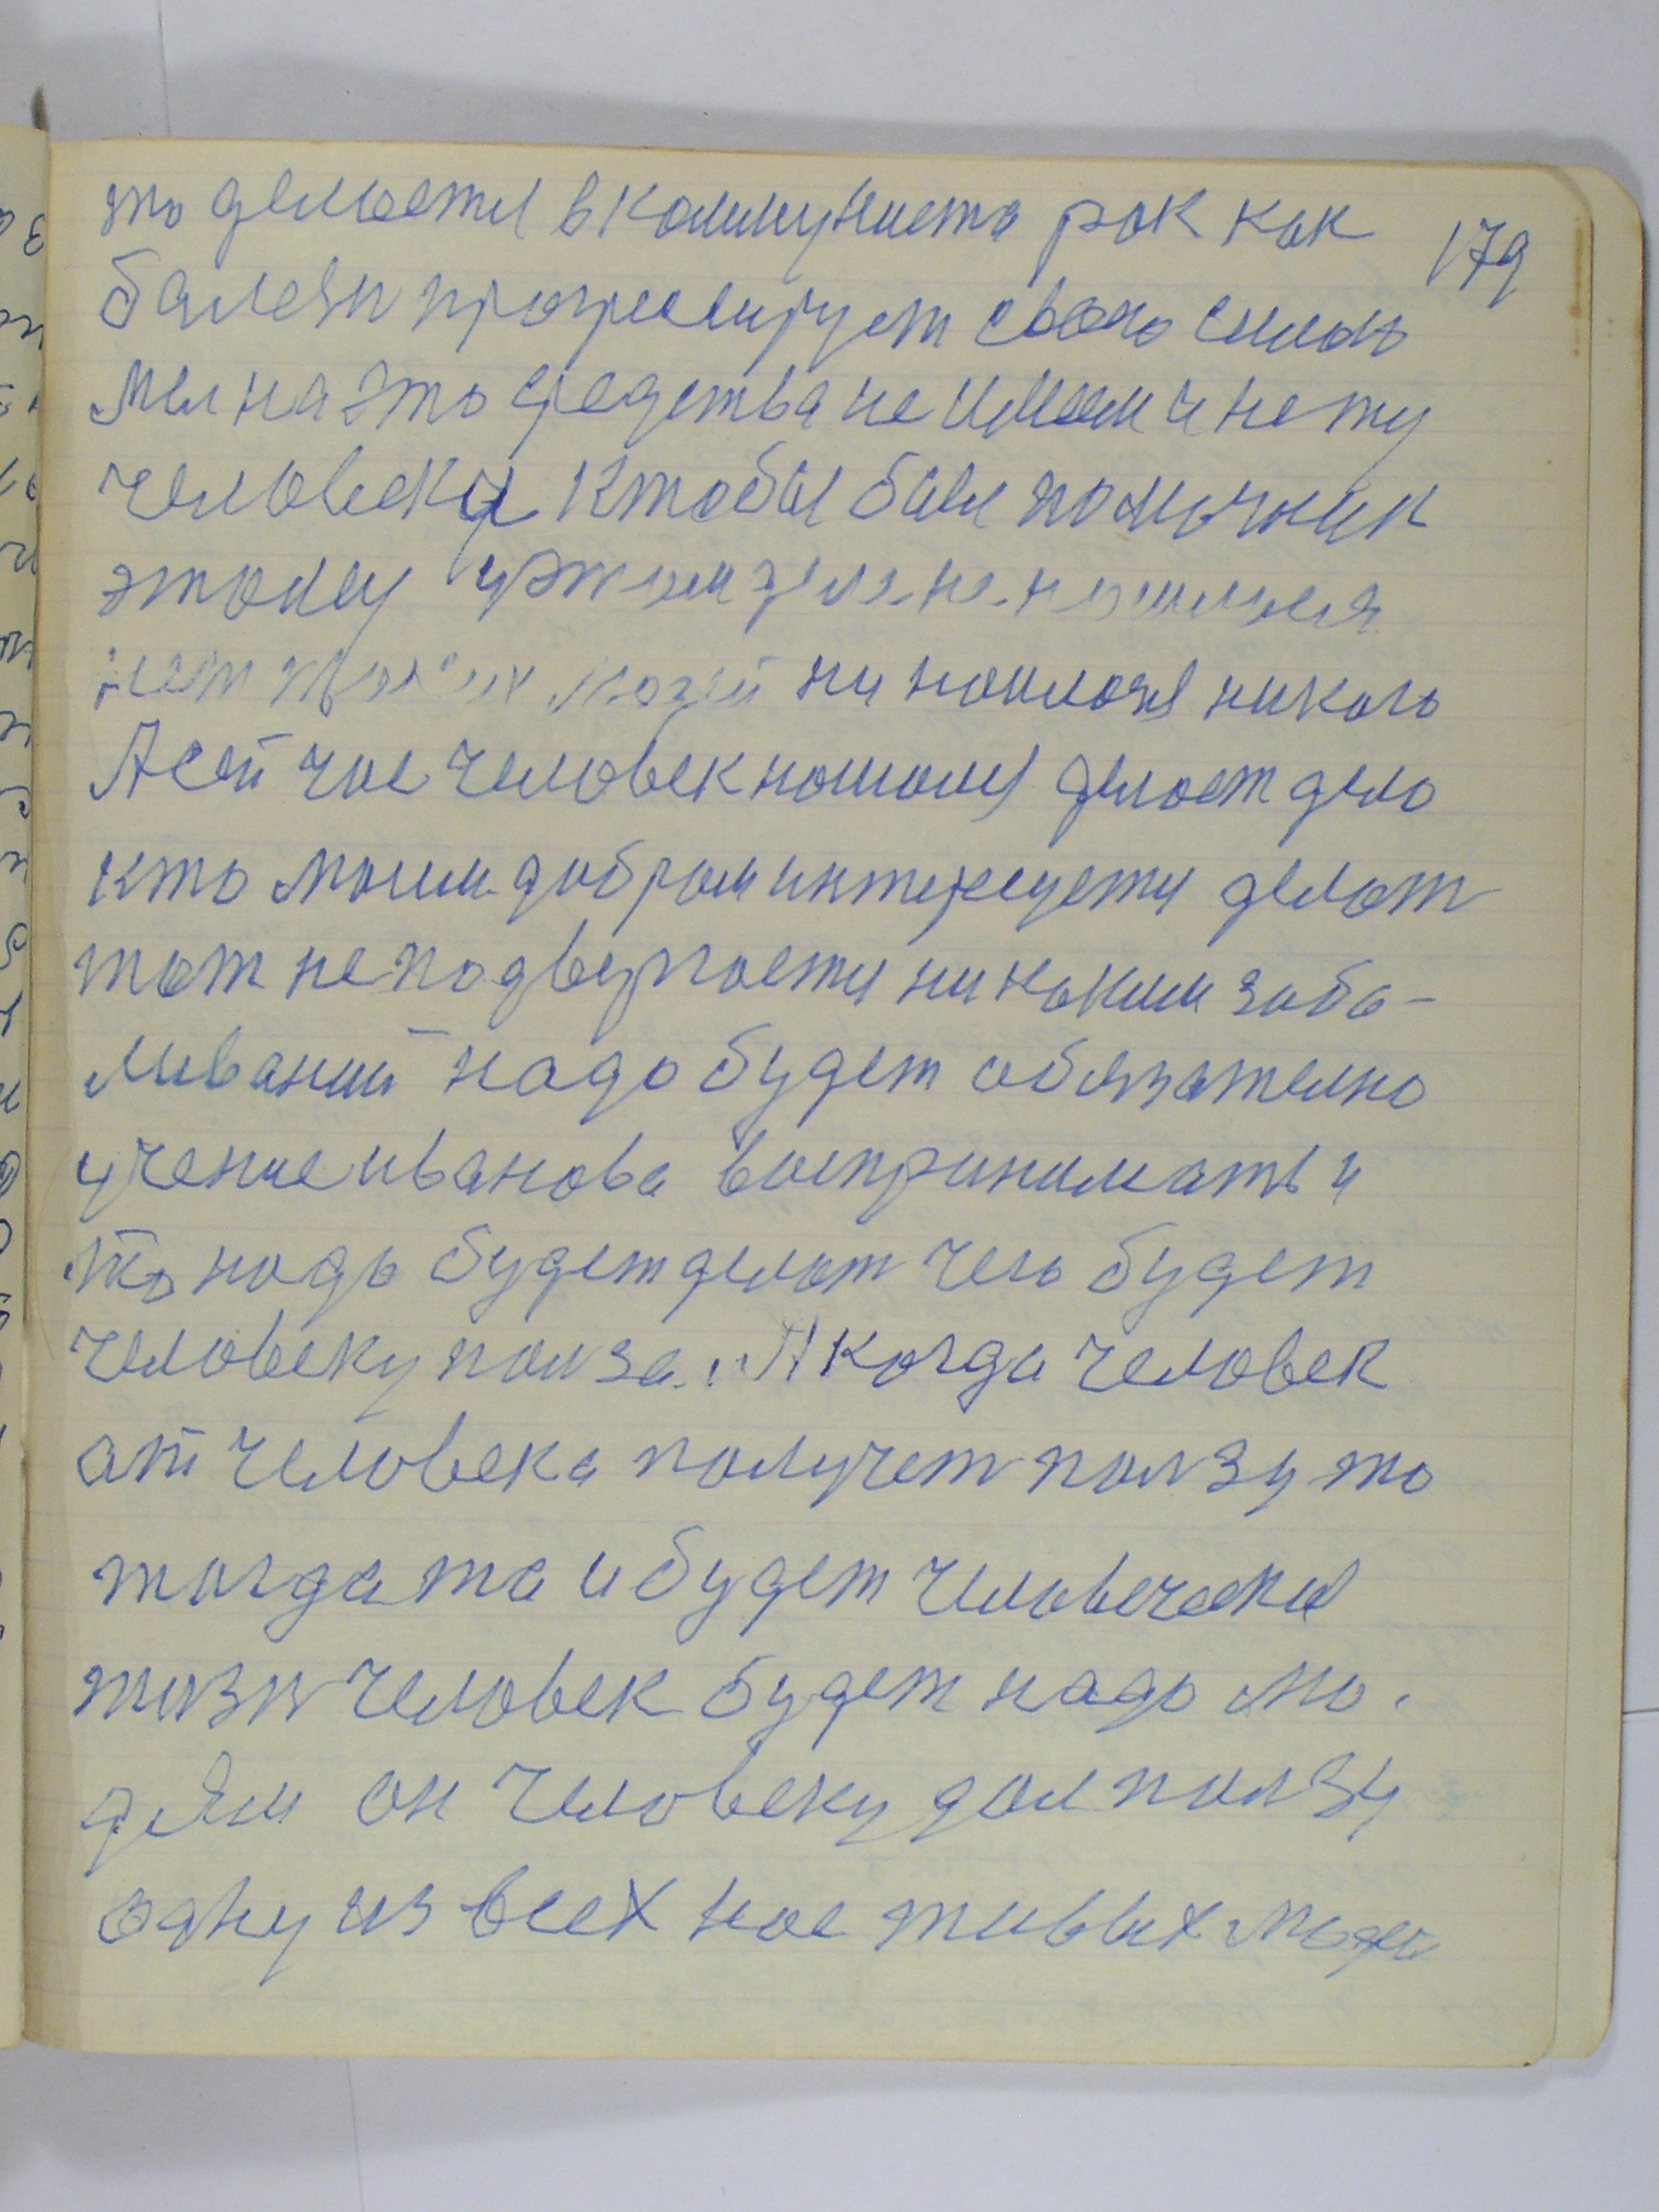 то делается в коммуниста рак как 179
балезн прогресирует своею силою
мы на это средства не имеем и нету
человека ктобы был помочник
этому
людей ни нашлося никого
А сей час человек нашолся делает дело
кто моим добром интересуется делат
тот не подвергается ни каким забо-
ливаний надо будет обязателно
учение иванова воспринимать и
то надо будет делат чего будет
человеку полза. А когда человек
ат человека получет ползу то
тогда та и будет человеческая
жизн человек будет надо лю.
дям он человеку дал ползу
одну из всех нас живых люди